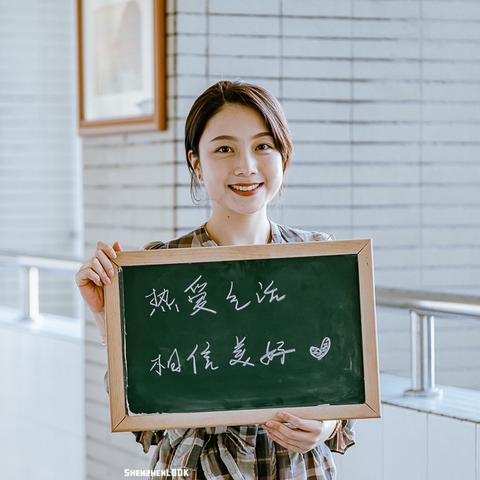 热爱生活
相信美好
SHENZHENLOOK